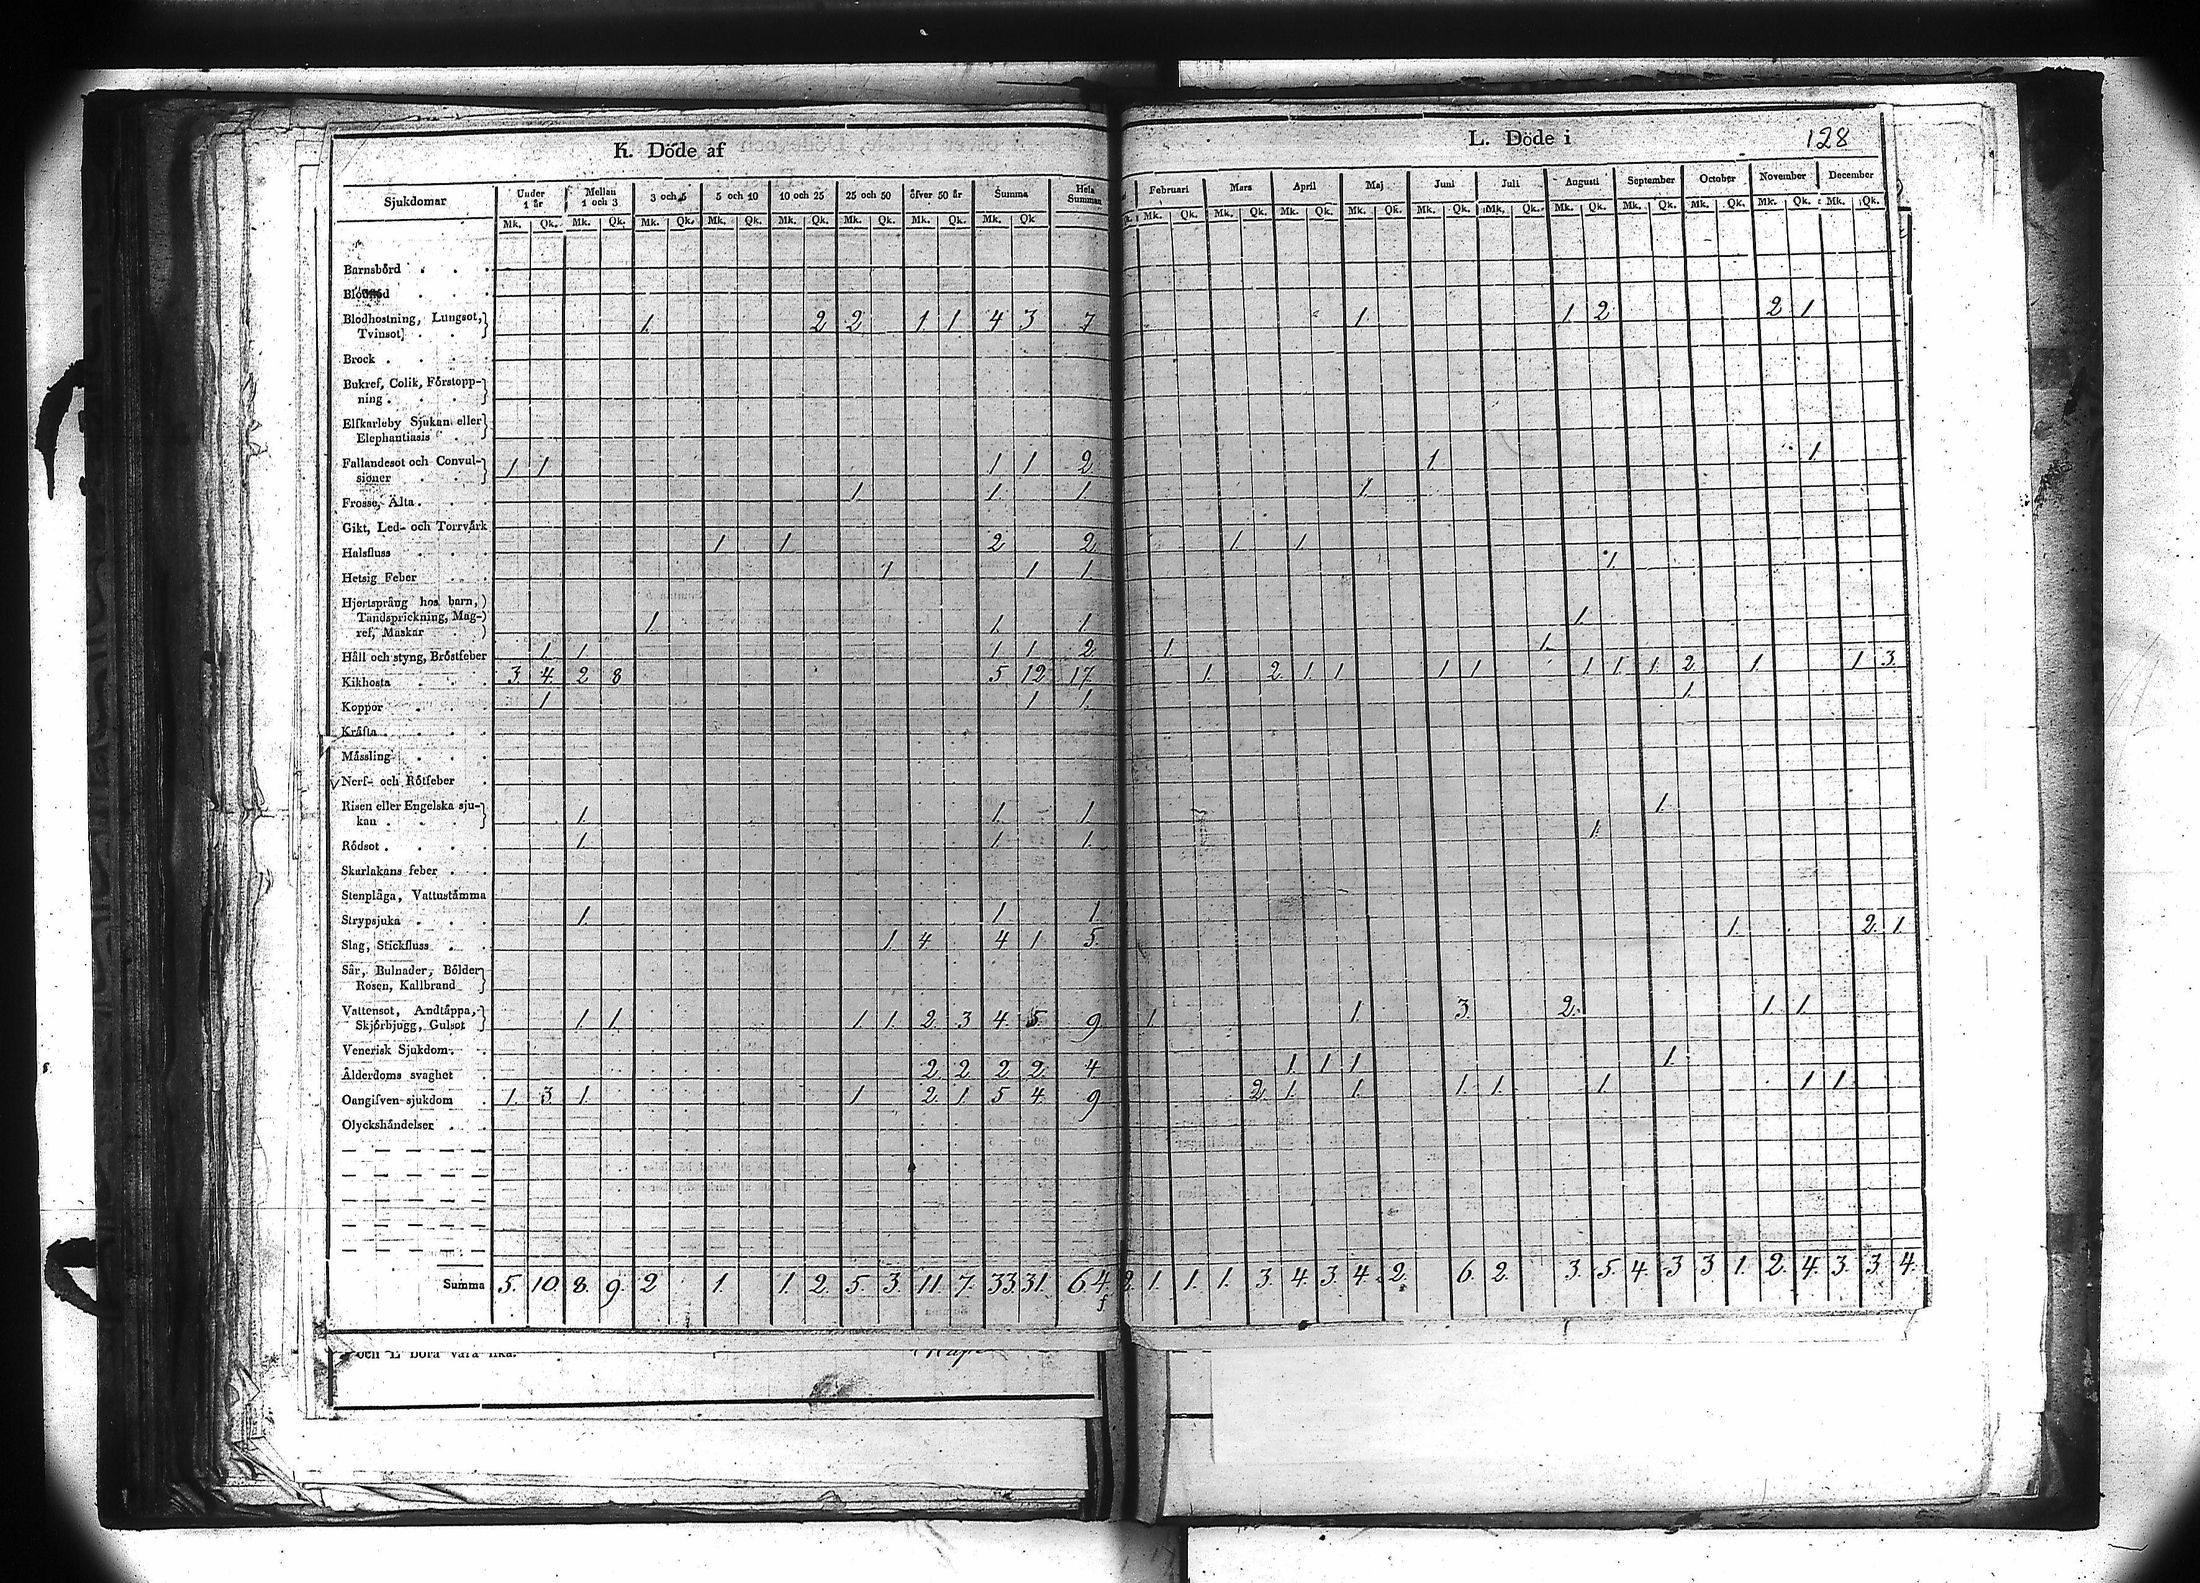 K. Döde af
L. Döde i
128
Sjukdomar Under 1 år Mellan 1 och 3 3 och 5 5 och 10 10 och 25 25 och 50 öfver 50 år Summa Hela Summan Februari Mars April Maj Juni Juli Augusti September October November December
Mk. Qk. Mk. Qk. Mk. Qk. Mk. Qk. Mk. Qk. Mk. Qk. Mk. Qk. Mk. Qk Mk. Qk. Mk. Qk. Mk. Qk. Mk. Qk. Mk. Qk. Mk. Qk. Mk. Qk. Mk. Qk. Mk. Qk. Mk. Qk. Mk. Qk.
Barnsbörd
Blodhostning, Lungsot,
Tvinsot 1. 2 2 1 1 4 3 7 1. 1. 2 2 1
Brock
Bukref, Colik, Förstopp-
ning
Elfkarleby Sjukan eller
Elephantiasis
Fallandesot och Convul-
sioner 1 1 1 1 2 1 1
Frossa, Älta 1 1 1 1
Gikt, Led- och Torrvärk
Halsfluss 1 1 2 2 1 1
Hetsig Feber 1 1 1 1
Hjertsprång hos barn,
Tandsprickning, Mag-
ref, Maskar 1. 1. 1 1
Håll och styng, Bröstfeber 1 1 1 1 2 1 1
Kikhosta 3. 4 2 8 5 12 17 1 2 1 1 1 1 1 1 1 2 1 1 3.
Koppor 1 1 1 1
Kräfta
Mässling
Nerf- och Rötfeber
Risen eller Engelska sju-
kan 1 1. 1 1
Rödsot 1. 1 1. 1.
Skarlakans feber
Stenplåga, Vattustämma
Strypsjuka 1. 1 1 1.
Slag, Stickfluss 1. 4 4 1 5. 2. 1.
Sår, Bulnader, Bölder
Rosen, Kallbrand
Vattensot, Andtäppa,
Skjörbjugg, Gulsot 1 1. 1 1. 2. 3 4. 5 9 1. 1. 3. 2. 1 1
Venerisk Sjukdom
Ålderdoms svaghet 2 2 2 2 4 1. 1 1 1.
Oangifven sjukdom 1. 3 1. 1 2. 1. 5 4. 9 2. 1. 1. 1 1. 1 1 1
Olyckshändelser
Summa 5. 10. 8. 9. 2 1. 1. 2. 5. 3. 11. 7. 33. 31. 64 2. 1. 1. 1. 3. 4. 3. 4. 2. 6. 2. 3. 5. 4. 3 3 1. 2. 4. 3. 3. 4.
och L böra vara lika.